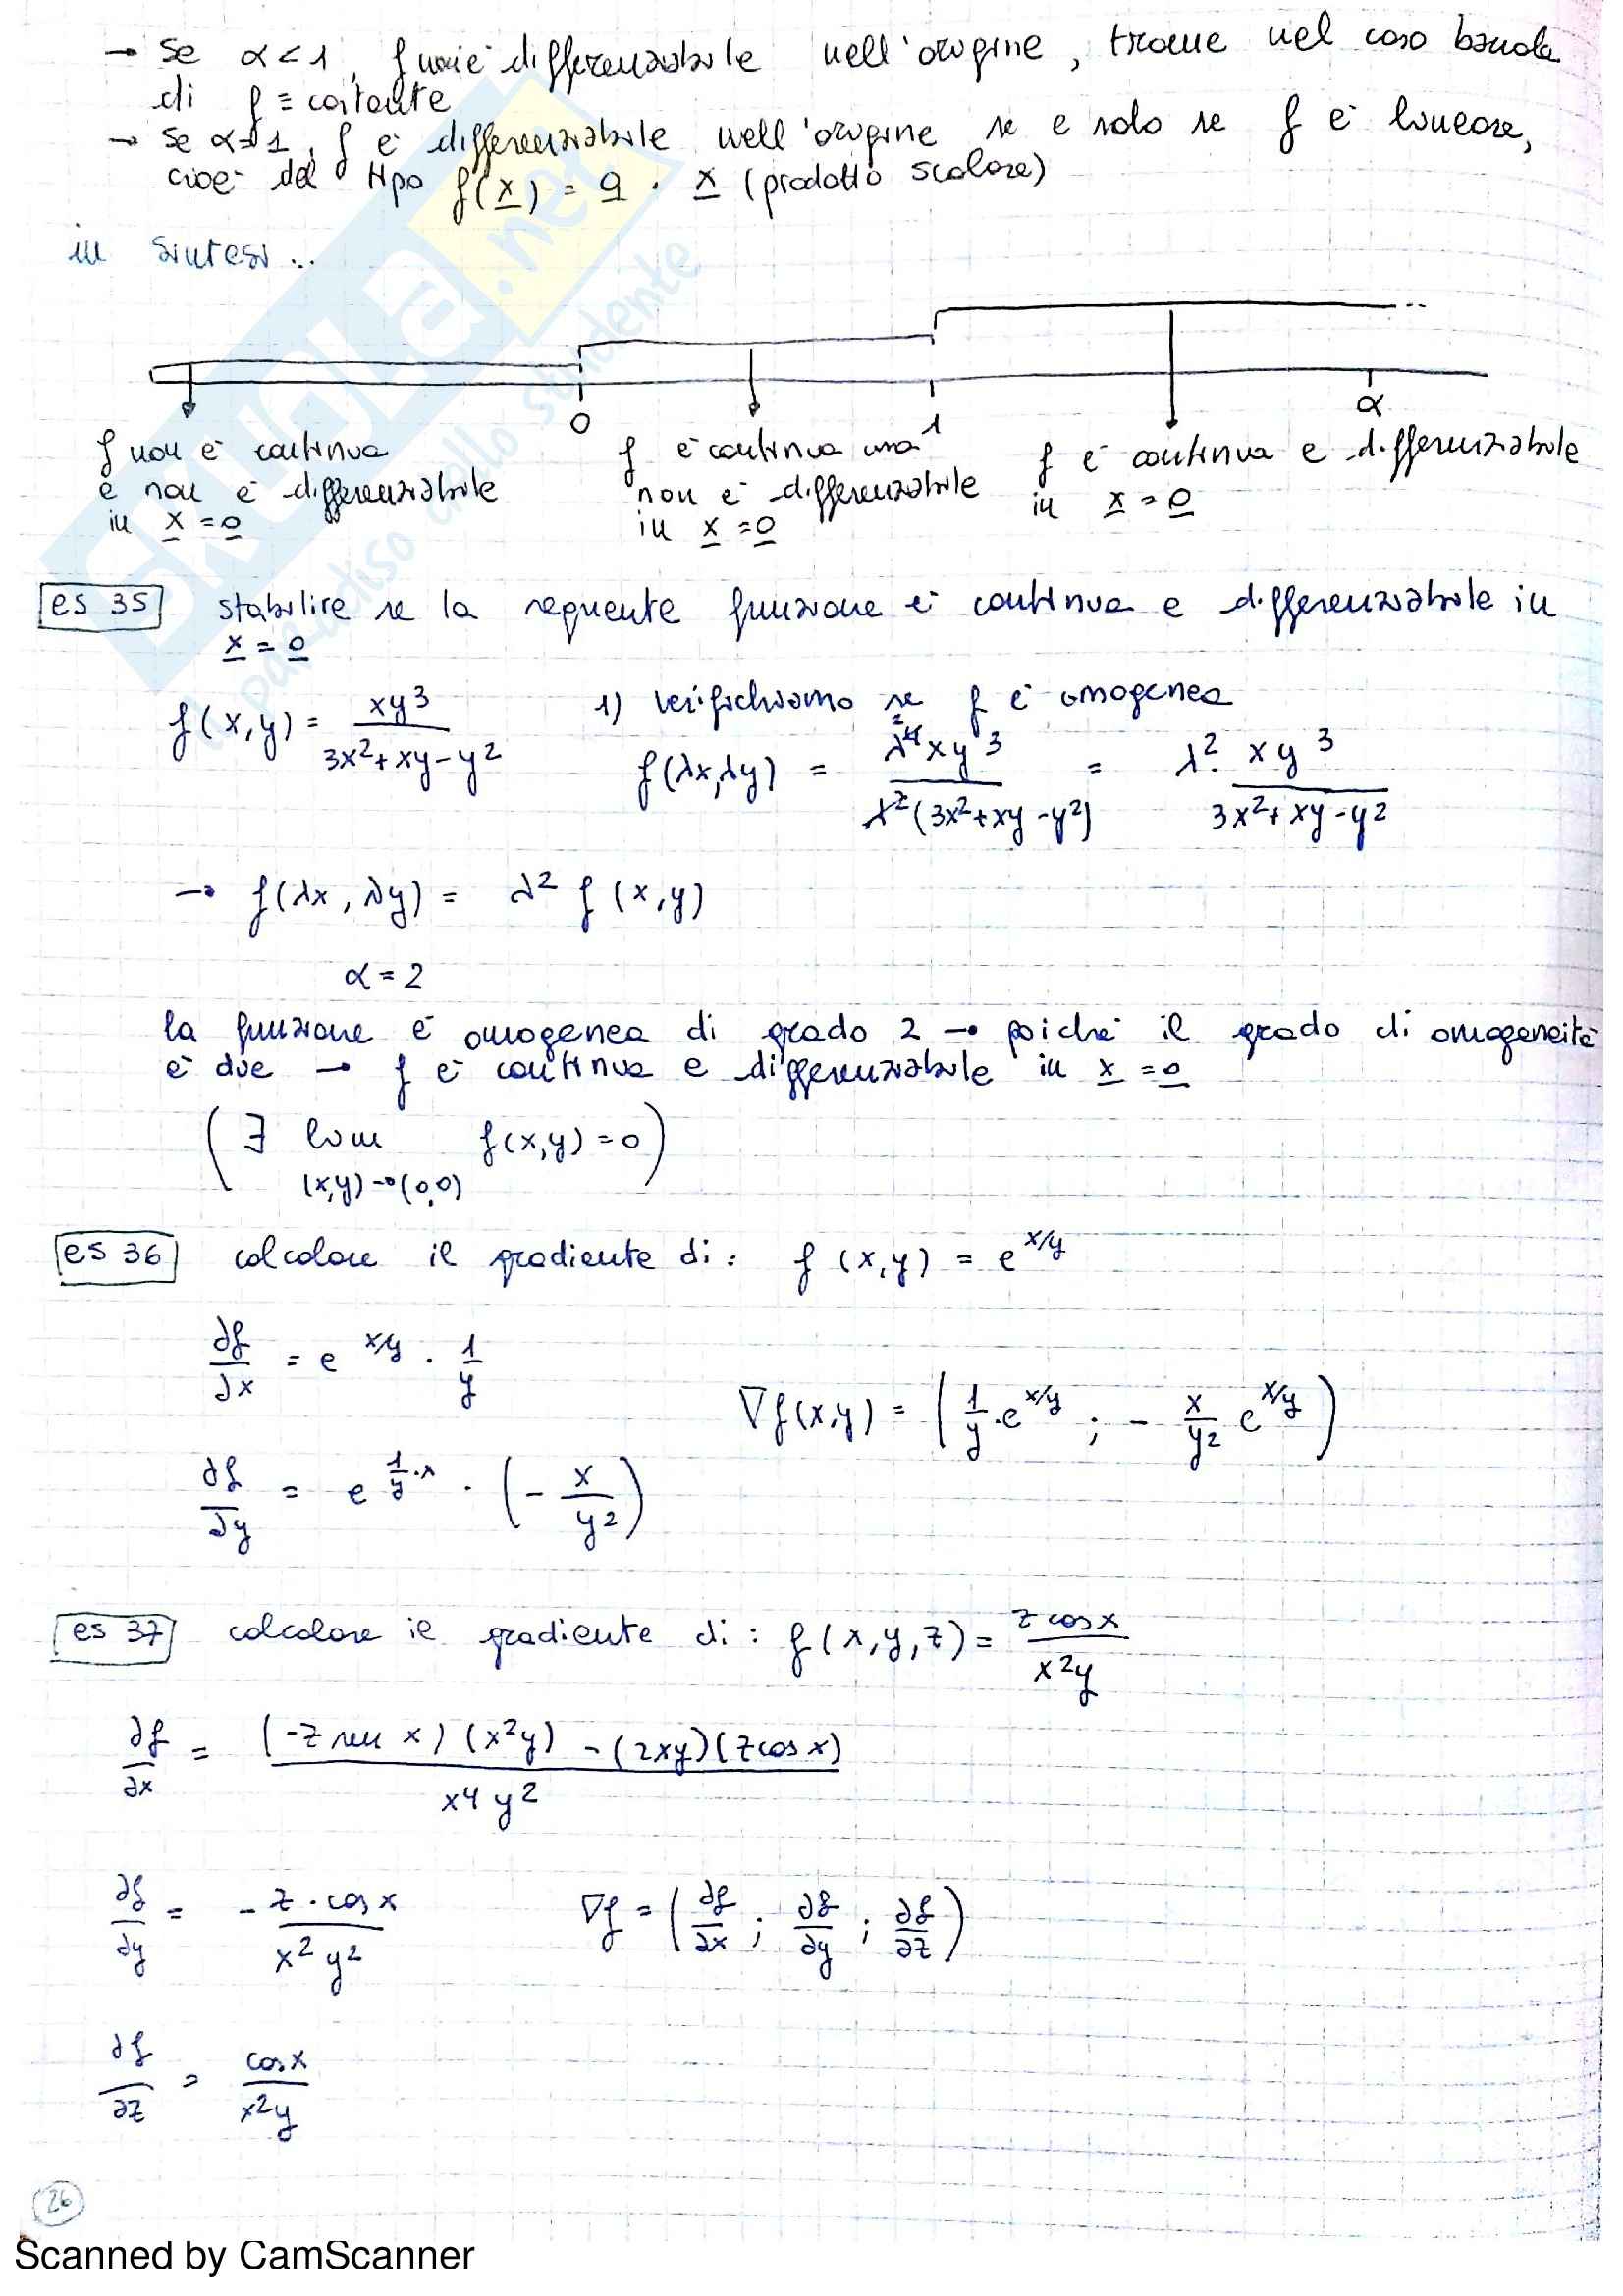 → Se α < 1, f non è differenziabile nell'origine, tranne nel caso banale
di f ≡ costante
→ Se α = 1, f è differenziabile nell'origine se e solo se f è lineare,
cioè del tipo f(x) = a · x (prodotto scalare)
in sintesi...
0
1
α
f non è continua
e non è differenziabile
in x = 0
f è continua ma
non è differenziabile
in x = 0
f è continua e differenziabile
in x = 0
es 35 stabilire se la seguente funzione è continua e differenziabile in
x = 0
f(x,y) = xy³ / (3x²+xy-y²) 1) verifichiamo se f è omogenea
f(λx,λy) = λ⁴xy³ / λ²(3x²+xy-y²) = λ² · xy³ / (3x²+xy-y²)
→ f(λx, λy) = λ² f(x,y)
α = 2
la funzione è omogenea di grado 2 → poiché il grado di omogeneità
è due → f è continua e differenziabile in x = 0
(∃ lim f(x,y) = 0)
(x,y)→(0,0)
es 36 calcolare il gradiente di: f(x,y) = e^(x/y)
∂f/∂x = e^(x/y) · 1/y
∇f(x,y) = (1/y · e^(x/y) ; - x/y² e^(x/y))
∂f/∂y = e^(1/y · x) · (- x/y²)
es 37 calcolare il gradiente di: f(x,y,z) = z cos x / x²y
∂f/∂x = (-z sen x)(x²y) - (2xy)(z cos x) / x⁴y²
∂f/∂y = - z · cos x / x²y² ∇f = (∂f/∂x ; ∂f/∂y ; ∂f/∂z)
∂f/∂z = cos x / x²y
26
Scanned by CamScanner
SKUOLA.net
il paradiso dello studente